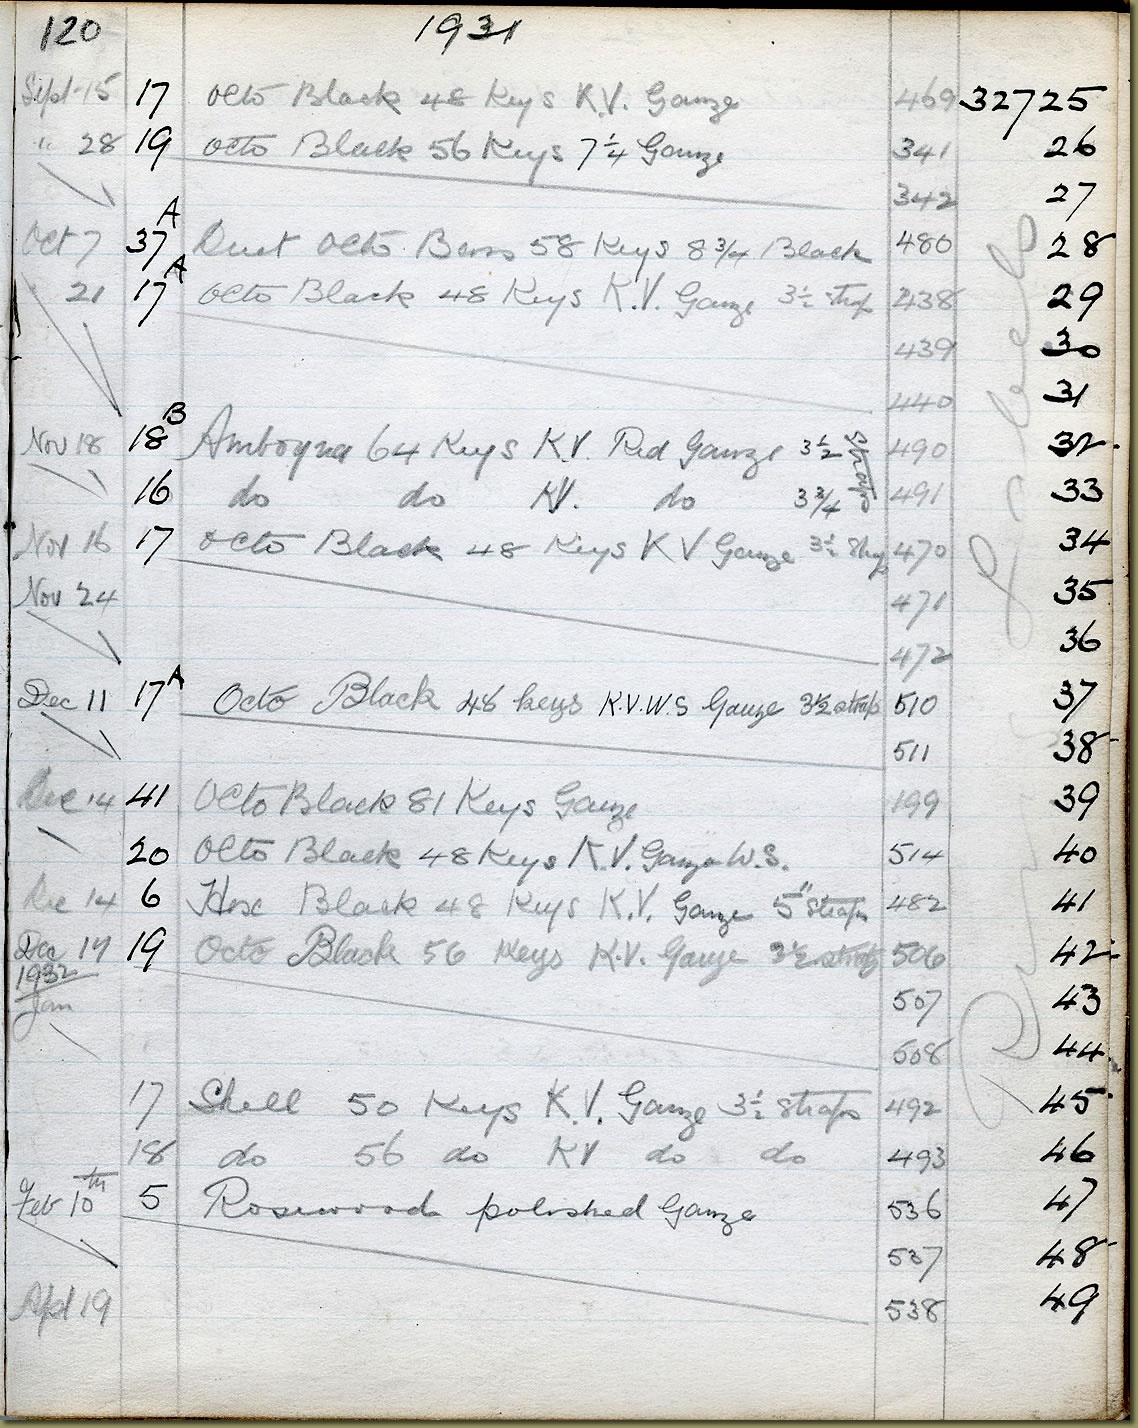 120 1931
Sept 15 17 Octo Black 48 Keys K.V. Gauze 469 32725
" 28 19 Octo Black 56 Keys 7¼ Gauze 341 26
342 27
Oct 7 37A Duet Octo Bass 58 Keys 8¾ Black 480 28
21 17A Octo Black 48 Keys K.V. Gauze 3½ strap 438 29
439 30
440 31
Nov 18 18B Amboyna 64 Keys K.V. Red Gauze 3½ straps 490 32
16 do do KV. do 3¾ 491 33
Nov 16 17 Octo Black 48 Keys KV Gauze 3½ Strap 470 34
Nov 24 471 35
472 36
Dec 11 17A Octo Black 48 keys K.V.W.S Gauze 3½ straps 510 37
511 38
Dec 14 41 Octo Black 81 Keys Gauze 199 39
20 Octo Black 48 Keys K.V. Gauze W.S. 514 40
Dec 14 6 Hex Black 48 Keys K.V. Gauze 5" Straps 482 41
Dec 17 19 Octo Black 56 Keys K.V. Gauze 3½ straps 506 42
1932
Jan 507 43
508 44
17 Shell 50 Keys K.V. Gauze 3½ Straps 492 45
18 do 56 do KV do do 493 46
Feb 10th 5 Rosewood polished Gauze 536 47
537 48
Apl 19 538 49